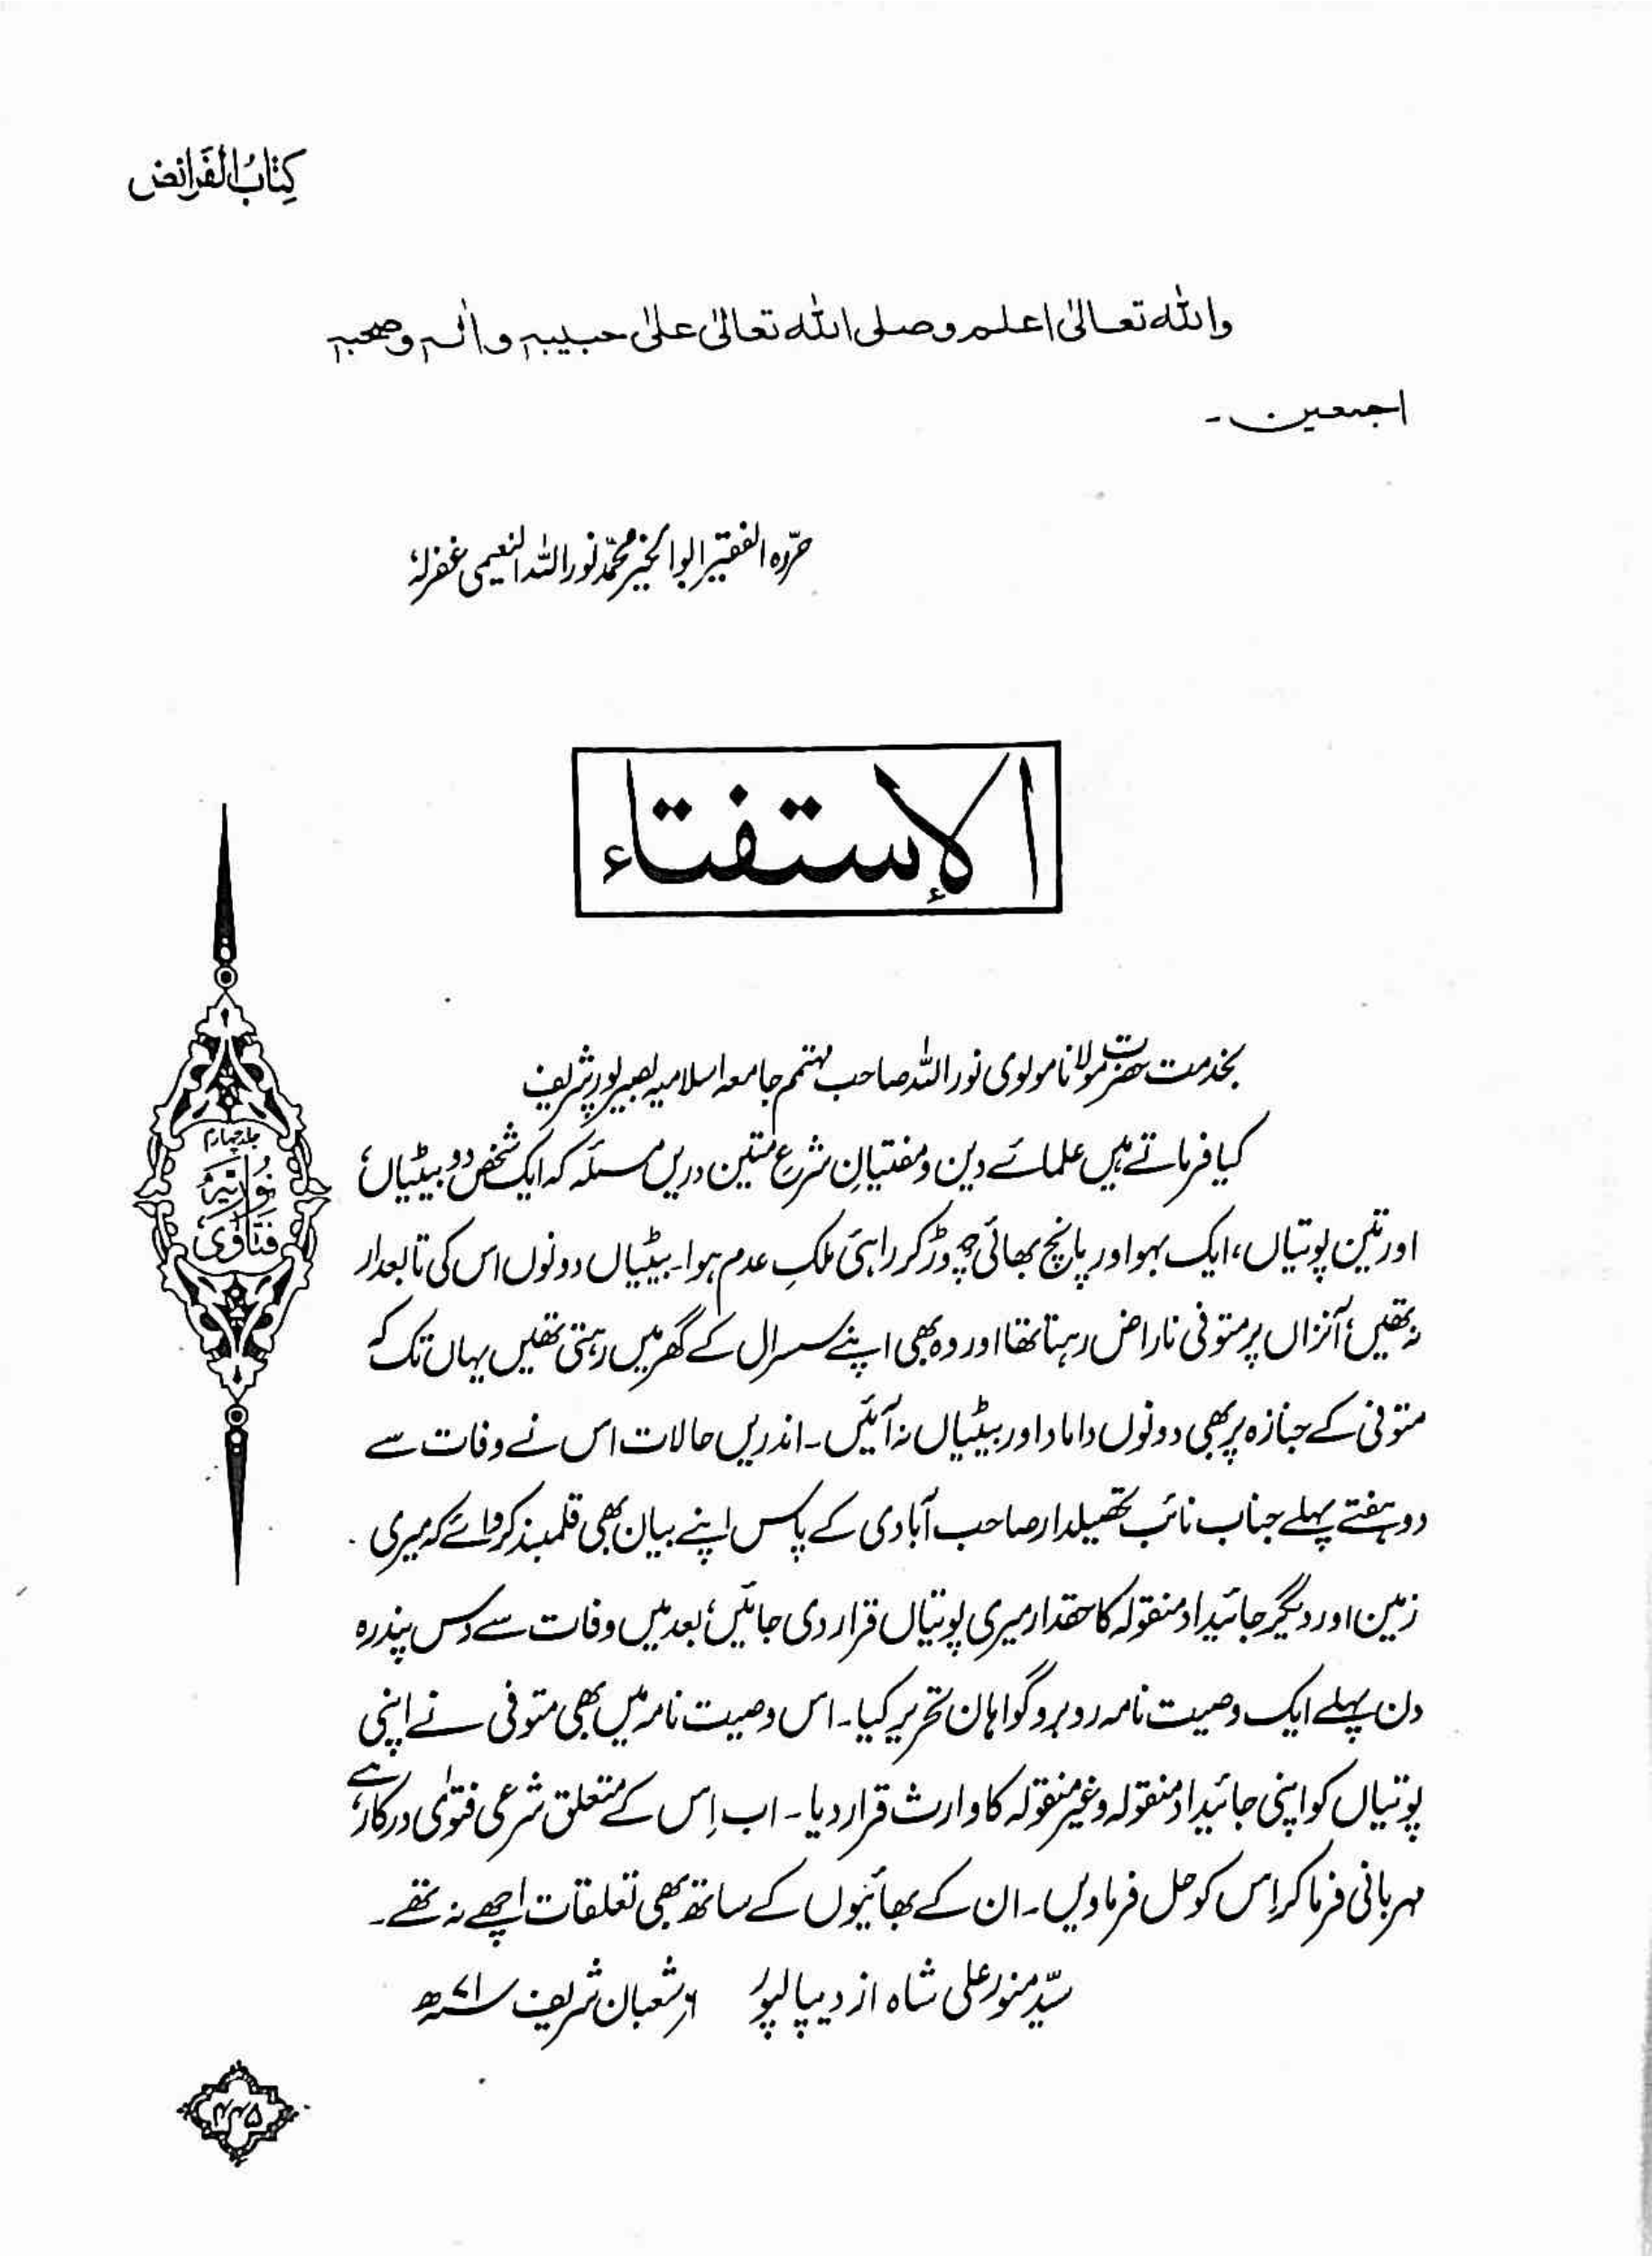 کِتَابُ الْفَرَائِض
واللہ تعالیٰ اعلم وصلی اللہ تعالیٰ علیٰ حبیبہٖ واٰلہٖ وصحبہٖ
اجمعین۔
حرّرہ الفقیر ابوالخیر محمّد نور اللہ النعیمی غفرلہٗ
الإستفتاء
بخدمت حضرت مولانا مولوی نور اللہ صاحب مہتمم جامعہ اسلامیہ بصیرپور شریف
کیا فرماتے ہیں علمائے دین و مفتیانِ شرعِ متین دریں مسئلہ کہ ایک شخص دو بیٹیاں،
اور تین پوتیاں، ایک بہو اور پانچ بھائی چھوڑ کر راہئ ملکِ عدم ہوا۔ بیٹیاں دونوں اس کی تابعدار
نہ تھیں، آنزاں پر متوفی ناراض رہتا تھا اور وہ بھی اپنے سسرال کے گھر میں رہتی تھیں یہاں تک کہ
متوفی کے جنازہ پر بھی دونوں داماد اور بیٹیاں نہ آئیں۔ اندریں حالات اس نے وفات سے
دو ہفتے پہلے جناب نائب تحصیلدار صاحب آبادی کے پاس اپنے بیان بھی قلمبند کروائے کہ میری
زمین اور دیگر جائیداد منقولہ کا حقدار میری پوتیاں قرار دی جائیں، بعد میں وفات سے دس پندرہ
دن پہلے ایک وصیت نامہ روبرو گواہان تحریر کیا۔ اس وصیت نامہ میں بھی متوفی نے اپنی
پوتیاں کو اپنی جائیداد منقولہ وغیر منقولہ کا وارث قرار دیا۔ اب اِس کے متعلق شرعی فتوٰی درکار ہے،
مہربانی فرما کر اِس کو حل فرماویں۔ ان کے بھائیوں کے ساتھ بھی تعلقات اچھے نہ تھے۔
سیّد منور علی شاہ از دیپالپور ۶ر شعبان شریف ۷۱ھ
جلد چہارم
نُورِیَہ
فَتَاوٰی
۴۴۵